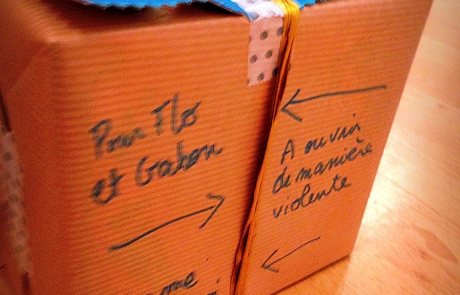 Pour Flo
et Gaton
A ouvrir
de manière
violente